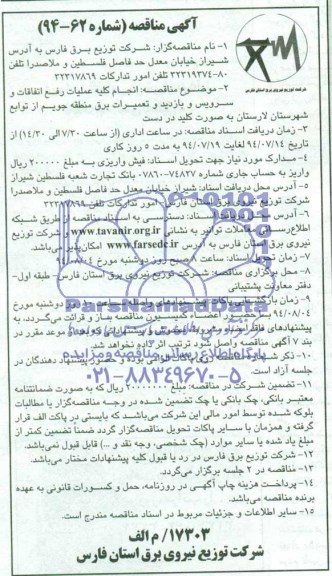 آگهی مناقصه (شماره ۶۲-۹۴)
شرکت توزیع نیروی برق استان فارس
۱- نام مناقصه‌گزار: شرکت توزیع برق فارس به آدرس
شیراز خیابان معدل حد فاصل فلسطین و ملاصدرا تلفن
۸۰-۳۲۳۱۹۳۷۴ تلفن امور تدارکات ۳۲۳۱۷۸۶۹
۲- موضوع مناقصه: انجام کلیه عملیات رفع اتفاقات و
سرویس و بازدید و تعمیرات برق منطقه جویم از توابع
شهرستان لارستان به صورت کلید در دست
۳- زمان دریافت اسناد مناقصه: در ساعت اداری (از ساعت ۷/۳۰ الی ۱۴/۳۰) از
تاریخ ۹۴/۰۷/۱۴ لغایت ۹۴/۰۷/۱۹ به مدت ۵ روز کاری
۴- مدارک مورد نیاز جهت تحویل اسناد: فیش واریزی به مبلغ ۲۰۰۰۰۰ ریال
واریز به حساب جاری شماره ۰۷۸۶۰-۷۴۸۲۷ بانک تجارت شعبه فلسطین شیراز
۵- آدرس محل دریافت اسناد: شیراز خیابان معدل حد فاصل فلسطین و ملاصدرا
شرکت توزیع نیروی برق استان فارس امور تدارکات تلفن ۳۲۳۱۷۸۶۹
۶- آدرس دریافت اسناد: دسترسی به اسناد مناقصه از طریق شبکه
اطلاع‌رسانی معاملات توانیر به نشانی www.tavanir.org.ir و شرکت توزیع
نیروی برق استان فارس به آدرس www.farsedc.ir امکان‌پذیر می‌باشد.
۷- زمان تحویل اسناد: ساعت ۸ صبح روز دوشنبه مورخ ۹۴/۰۸/۰۴
۸- محل برگزاری مناقصه: شرکت توزیع نیروی برق استان فارس- طبقه اول-
دفتر معاونت پشتیبانی
۹- زمان بازگشایی پاکات پیشنهادهای واصله ساعت صبح روز دوشنبه مورخ
۹۴/۰۸/۰۴ با حضور اعضاء کمیسیون مناقصه باز و قرائت می‌گردد، به
پیشنهادهای فاقد امضاء مشروط مخدوش و پیشنهاداتی که بعد از موعد مقرر در
بند ۷ آگهی مناقصه واصل شود ترتیب اثر داده نخواهد شد.
حضور پیشنهاد دهندگان در
جلسه آزاد است.
۱۱- تضمین شرکت در مناقصه: مبلغ ریال که به صورت ضمانتنامه
معتبر بانکی، چک بانکی یا چک تضمین شده در وجه مناقصه‌گزار یا مطالبات
بلوکه شده توسط امور مالی این شرکت می‌باشد که بایستی در پاکت الف قرار
گرفته و همزمان با سایر پاکات تحویل مناقصه‌گزار گردد ضمناً تضمین کمتر از
مبلغ یاد شده یا سایر موارد (چک شخصی، وجه نقد و ...) قابل قبول نمی‌باشد.
۱۲- شرکت توزیع برق فارس در رد یا قبول کلیه پیشنهادات مختار می‌باشد.
۱۳- مناقصه در ۲ جلسه برگزار می‌گردد.
۱۴- پرداخت هزینه چاپ آگهی در روزنامه، حمل و کسورات قانونی به عهده
برنده مناقصه می‌باشد.
۱۵- سایر اطلاعات و جزئیات مربوط در اسناد مناقصه مندرج است.
۱۷۳۰۳/ م الف
شرکت توزیع نیروی برق استان فارس
ParsNamadData
پایگاه اطلاع رسانی مناقصه و مزایده
۰۲۱-۸۸۳۴۹۶۷۰-۵